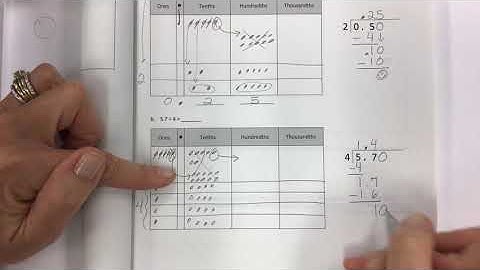 Ones • Tenths Hundredths Thousandths
0. 2 5
.25
2 0.50
- 4
.10
- .10
0
b. 5.7 ÷ 4 =
Ones • Tenths Hundredths Thousandths
4
1.4
4 5.70
- 4
1.7
- 1.6
10